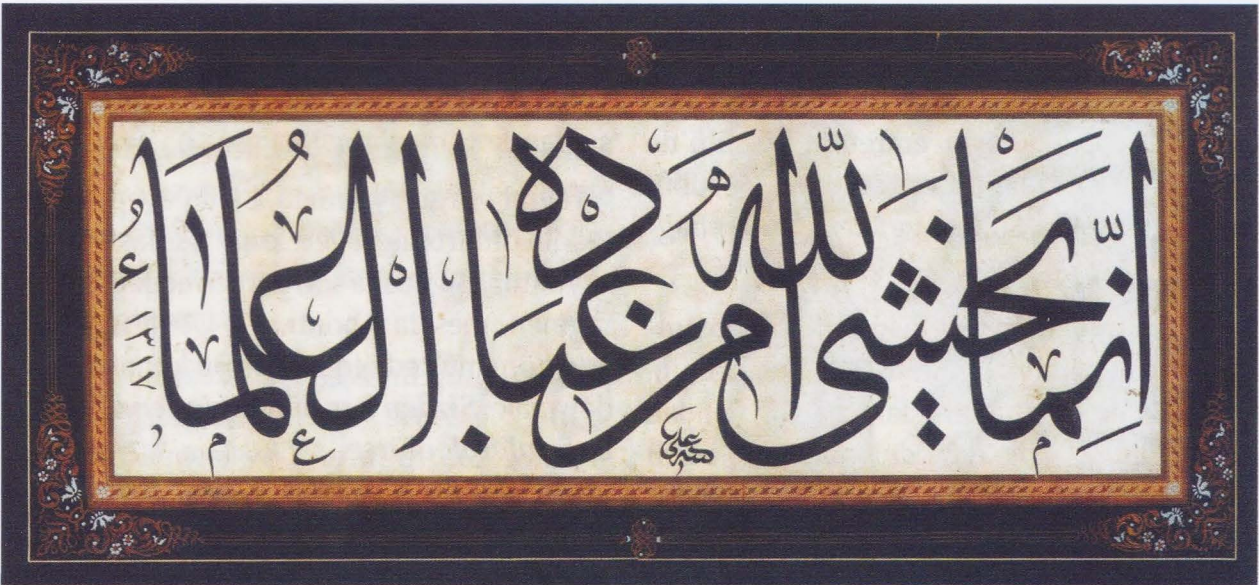 إنّما يخشى اللّٰه من عباده العلماءُ
١٣١٧